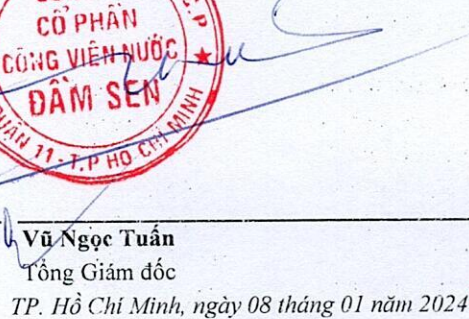 CỔ PHẦN
CÔNG VIÊN NƯỚC
ĐẦM SEN
QUẬN 11 - T.P HỒ CHÍ MINH
Vũ Ngọc Tuấn
Tổng Giám đốc
TP. Hồ Chí Minh, ngày 08 tháng 01 năm 2024